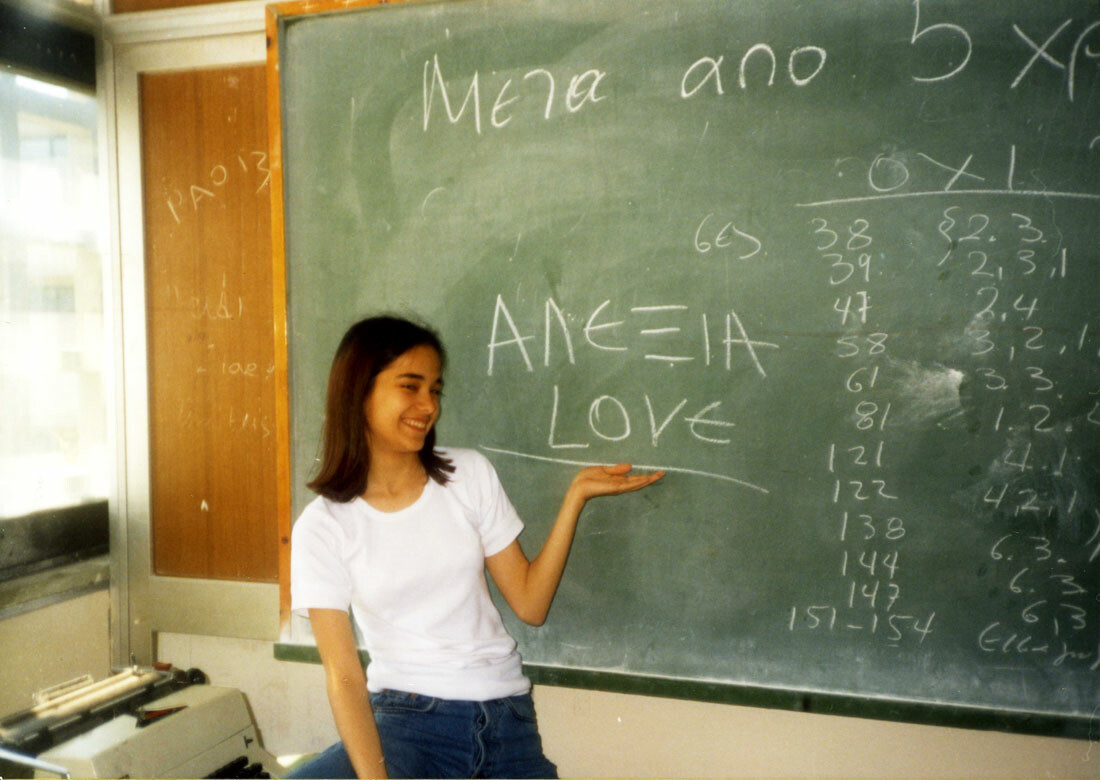 Μετα απο 5 χρ
0 X 1
σελ. 38 2. 3.
39 2, 3, 1
47 2, 4
58 3, 2, 1,
61 3. 3.
81 1. 2.
121 4. 1.
122 4, 2, 1
138 6. 3.
144 6. 3
147 6, 3
151-154
ΑΛΕΞΙΑ
LOVE
ΡΑΟ 13